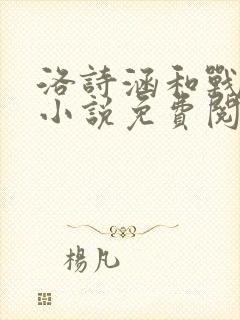 洛詩涵和戰
小說免費閱
楊凡